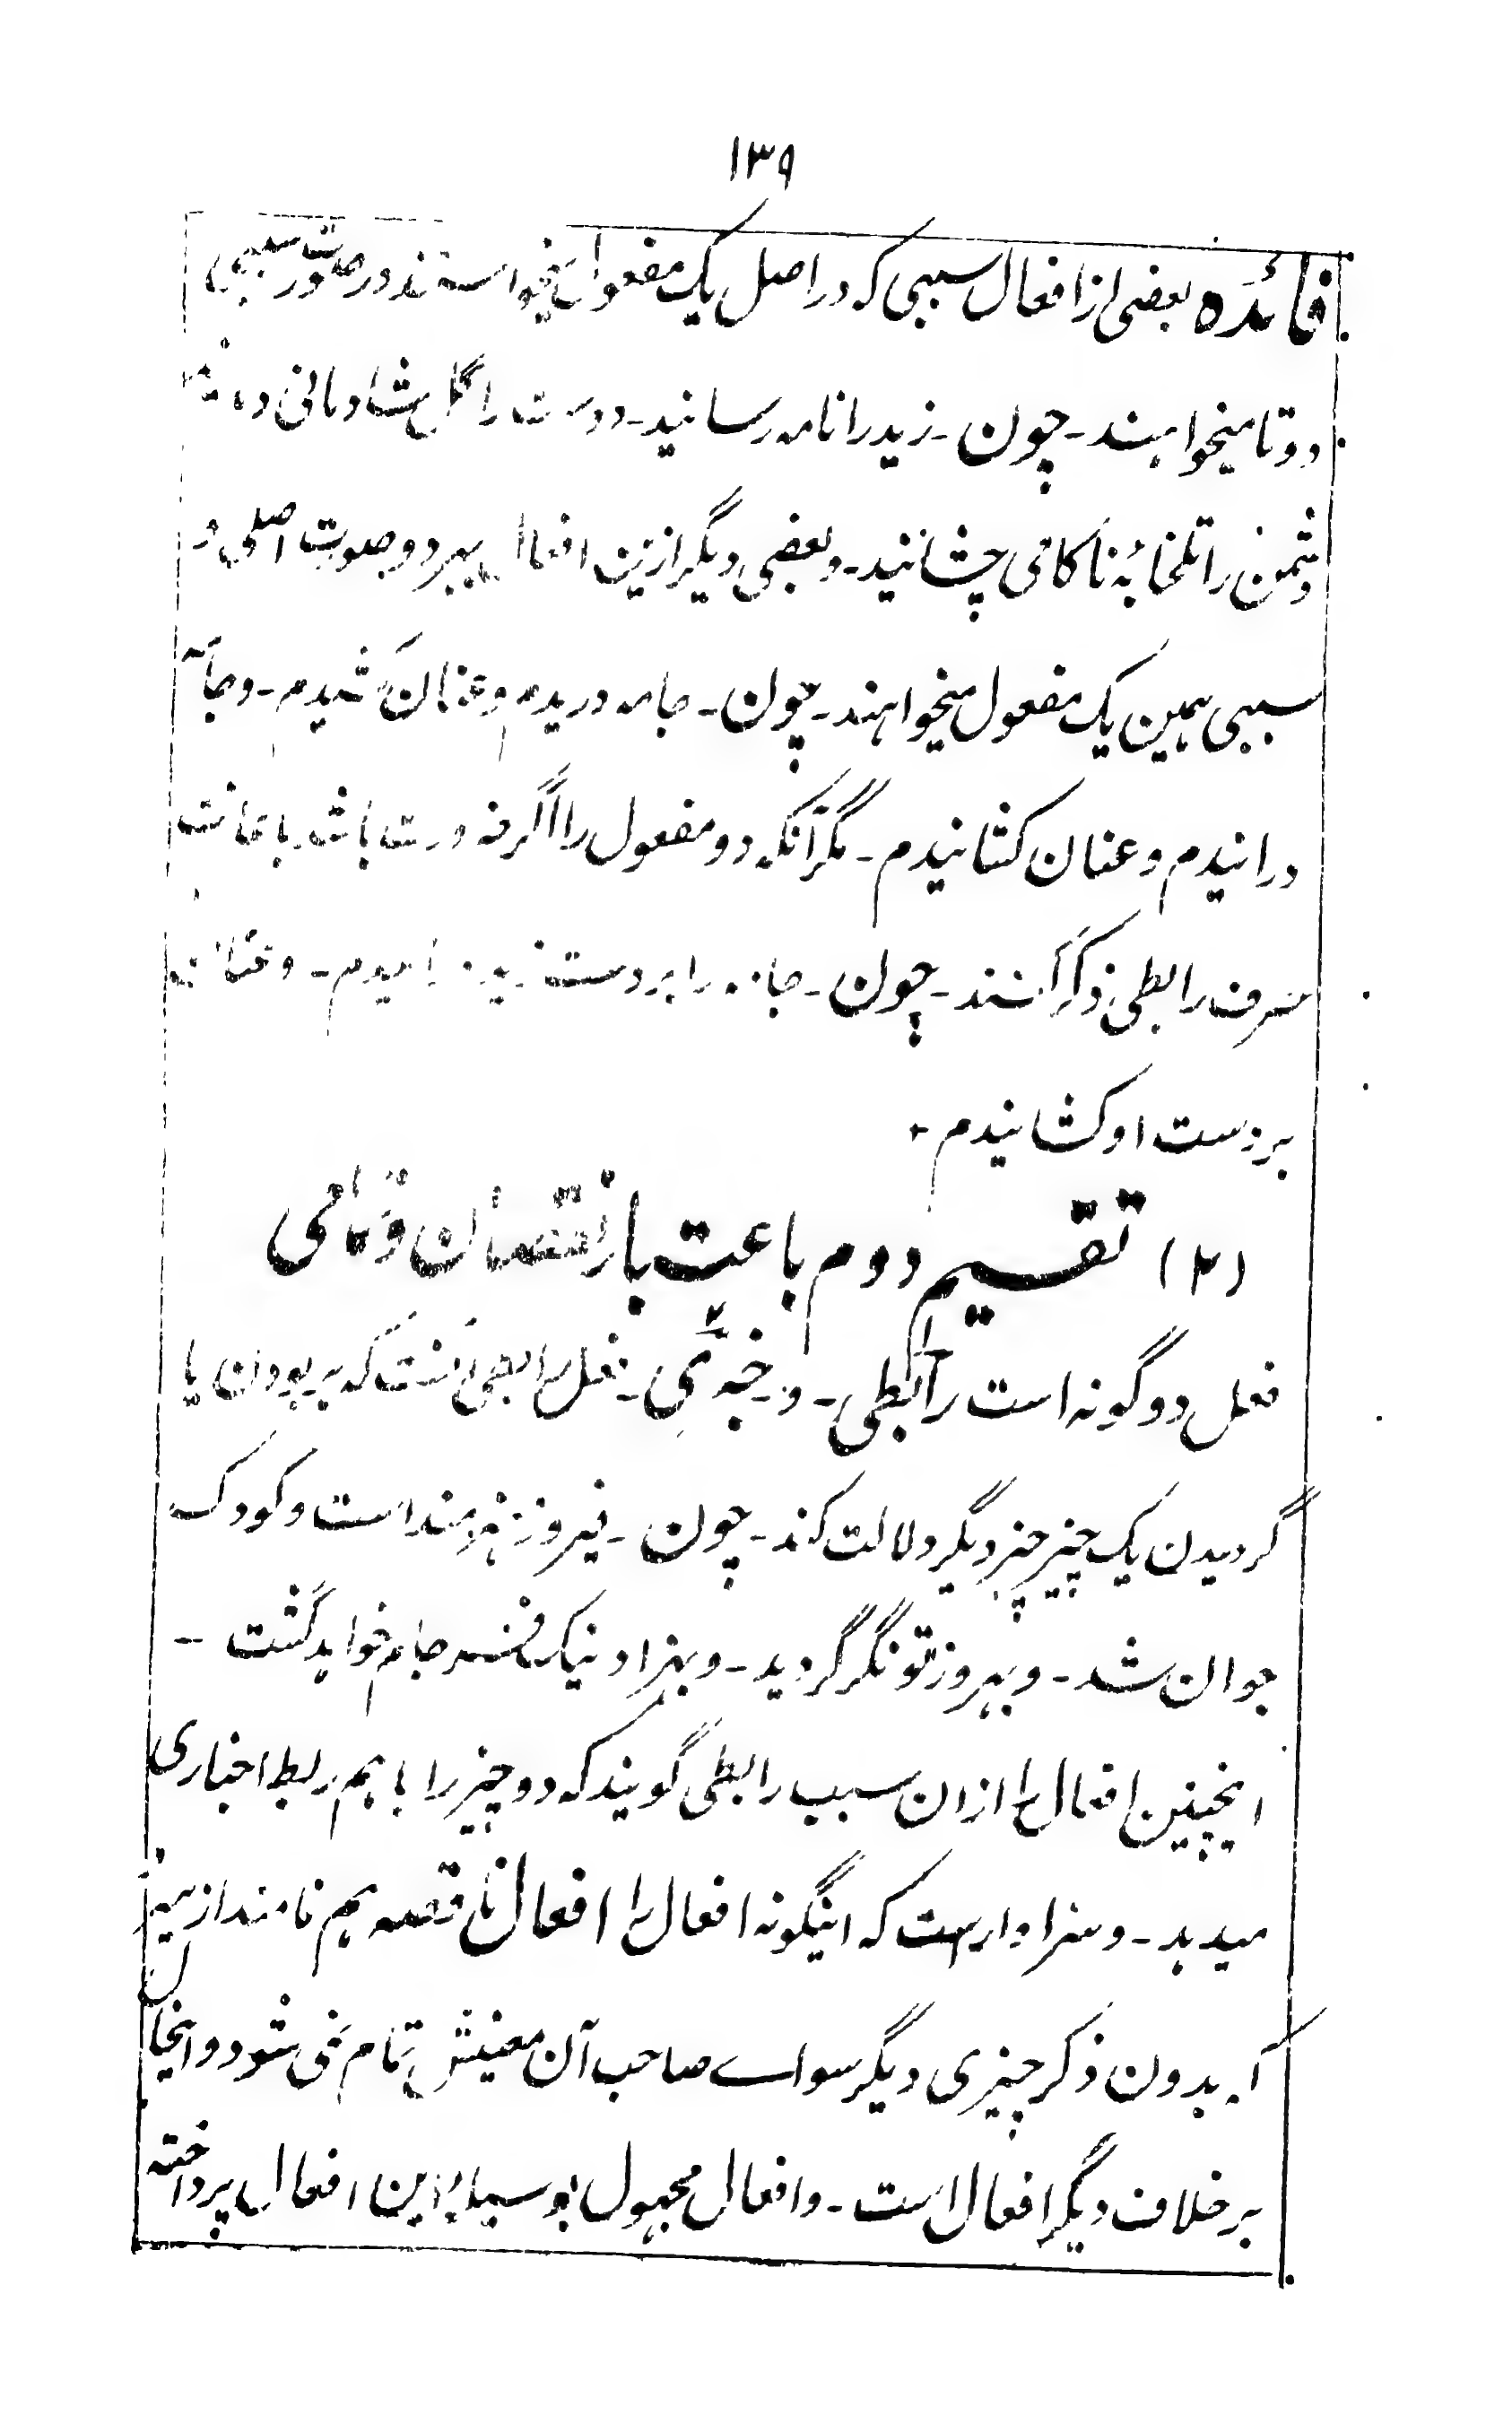 ۱۳۹
فائده بعضی از افعال سببی که در اصل یک مفعول میخواستند در صورت سببی
دوتا میخواهند - چون - زید را نامه رسانید - دوست را گل شادمانی
دشمن را تلخابهٔ ناکامی چشانید - و بعضی دیگر ازین افعال بهر دو صورت اصلی و
سببی همین یک مفعول میخواهند - چون - جامه دریدم و عنان کشیدم - و جامه
درانیدم و عنان کشانیدم - مگر آنکه دو مفعول را اگر ضرورت باشد باعانت
حرف رابطی ذکر کنند - چون - جامه را بر دست زید درانیدم - و عنان
بر دست او کشانیدم -
(۲) تقسیم دوم باعتبار نقصان و تمامی
فعل دو گونه است رابطی - و - خبری - فعل رابطی آنست که بر بودن یا
گردیدن یک چیز چیز دیگر دلالت کند - چون - فیروز هنرمند است و کودک
جوان شد - و بهروز تونگر گردید - و بهزاد نیک خواهد گشت -
اینچنین افعال را ازان سبب رابطی گویند که دو چیز را باهم ربط اخباری
میدهد - و سزاوارست که اینگونه افعال را افعال ناقصه هم نامند از بهر
آنکه بدون ذکر چیزی دیگر سواے صاحب آن معنیش تمام نمی شود و اینحال
بر خلاف دیگر افعال است - و افعال مجهول بوسیلهٔ این افعال پرداخته